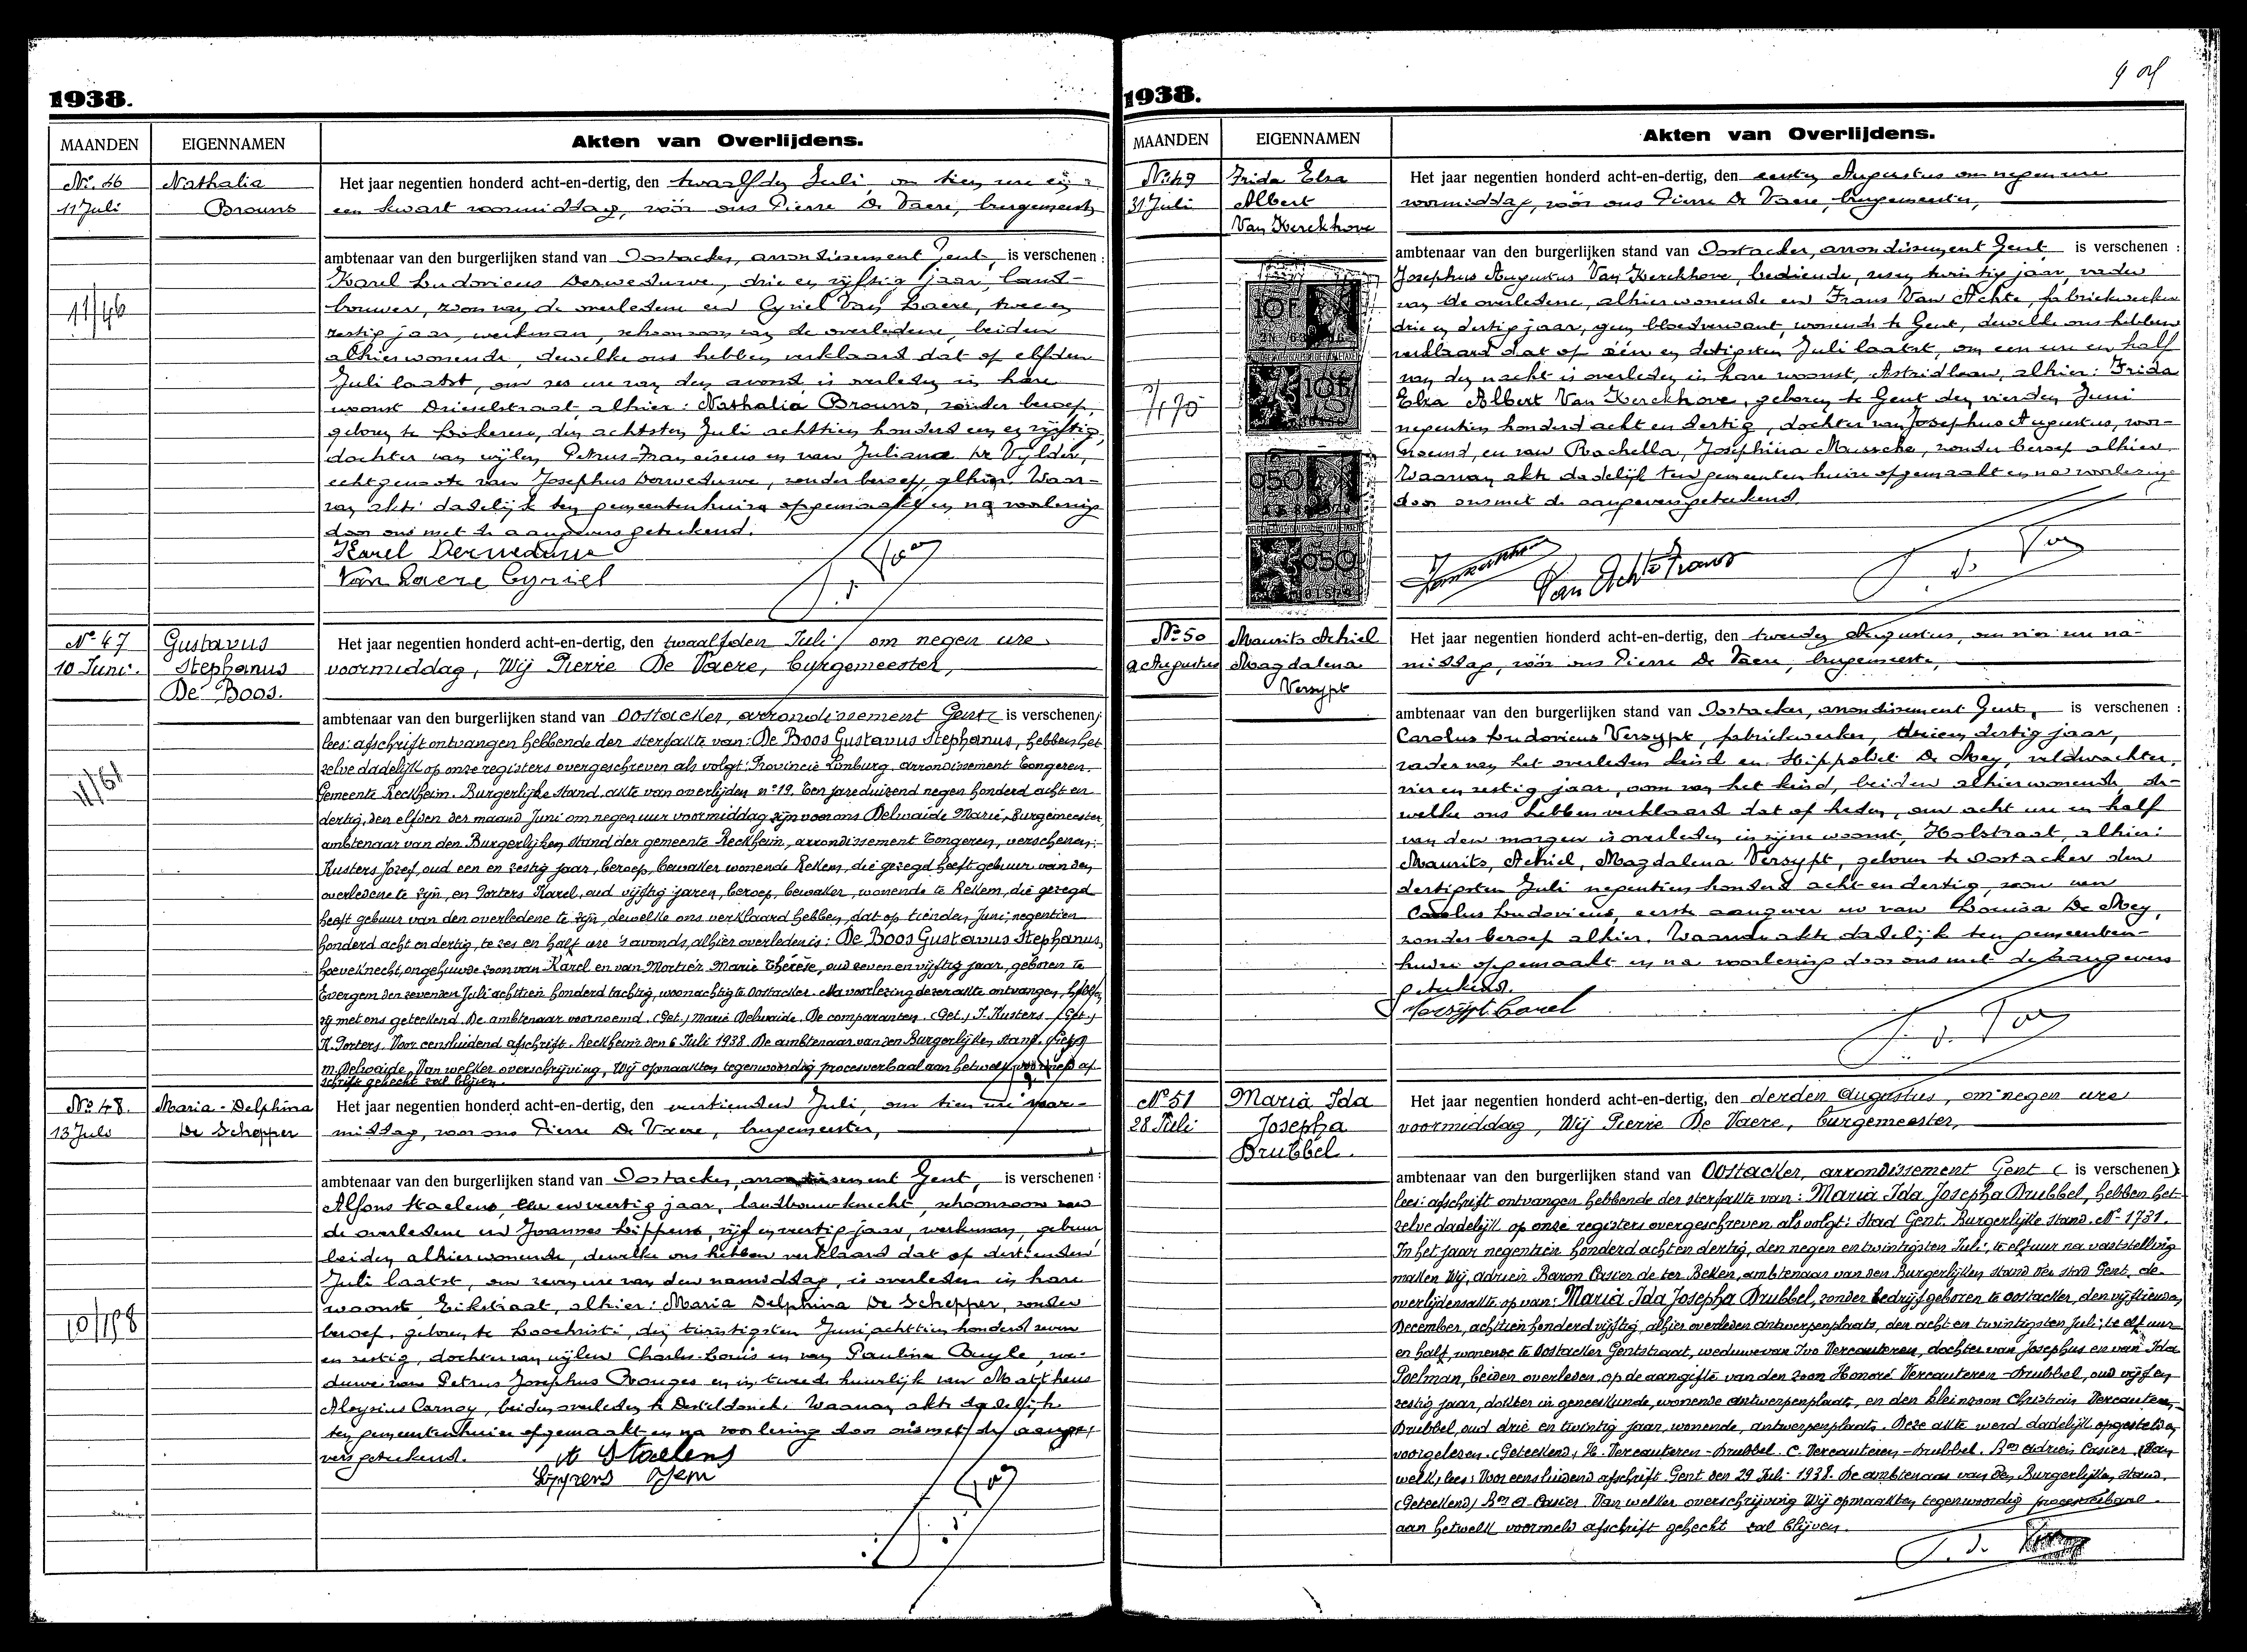 1938.
MAANDEN EIGENNAMEN Akten van Overlijdens.
No. 46 Nathalia
11 Juli Brouns
11/46
Het jaar negentien honderd acht-en-dertig, den twaalfden Juli, om tien ure en
een kwart voormiddag, vóór ons Pierre De Vaere, burgemeester
ambtenaar van den burgerlijken stand van Oostacker, arrondissement Gent, is verschenen:
Karel Ludovicus Derweduwe, drie en vijftig jaar, land-
bouwer, zoon van de overledene en Cyriel Van Laere, twee en
zestig jaar, werkman, schoonzoon van de overledene, beiden
alhier wonende, dewelke ons hebben verklaard dat op elfden
Juli laatst, om zes ure van den avond is overleden in hare
woonst Drieselstraat, alhier: Nathalia Brouns, zonder beroep,
geboren te Lokeren, den achtsten Juli achttien honderd een en vijftig,
dochter van wijlen Petrus-Franciscus en van Juliana De Vylder,
echtgenoote van Josephus Derweduwe, zonder beroep, alhier. Waar-
van akte dadelijk ten gemeentenhuize opgemaakt en na voorlezing
door ons met de aangevers geteekend.
Karel Derweduwe
Van Laere Cyriel
No 47 Gustavus
10 Juni. Stephanus
De Boos.
11/61
Het jaar negentien honderd acht-en-dertig, den twaalfden Juli om negen ure
voormiddag, Wij Pierre De Vaere, burgemeester,
ambtenaar van den burgerlijken stand van Oostacker, arrondissement Gent ( is verschenen)
lees: afschrift ontvangen hebbende der sterfakte van: De Boos Gustavus Stephanus, hebben het
zelve dadelijk op onze registers overgeschreven als volgt: Provincie Limburg. arrondissement Tongeren.
Gemeente Reckheim. Burgerlijke stand. akte van overlijden no 19. Ten jare duizend negen honderd acht en
dertig, den elfden der maand Juni om negen uur voormiddag zijn voor ons Delwaide Marie, Burgemeester,
ambtenaar van den Burgerlijken stand der gemeente Reckheim, arrondissement Tongeren, verschenen:
Kusters Jozef, oud een en zestig jaar, beroep, bewaker wonende Rekem, die gezegd heeft gebuur van den
overledene te zijn, en Porters Karel, oud vijftig jaren, beroep, bewaker, wonende te Rekem, die gezegd
heeft gebuur van den overledene te zijn, dewelke ons verklaard hebben, dat op tienden Juni, negentien
honderd acht en dertig, te zes en half ure 's avonds, alhier overleden is: De Boos Gustavus Stephanus,
hoeveknecht, ongehuwde zoon van Karel en van Mortier Marie Thérèse, oud zeven en vijftig jaar, geboren te
Evergem den zevenden Juli achttien honderd tachtig, woonachtig te Oostacker. Na voorlezing dezer akte ontvangen, hebben
zij met ons geteekend. De ambtenaar voornoemd. (Get.) Marie Delwaide. De comparanten. (Get.) J. Kusters (Get.)
K. Porters. Voor eensluidend afschrift. Reckheim den 6 Juli 1938. De ambtenaar van den Burgerlijken stand. (Get.)
M. Delwaide. Van welker overschrijving, Wij opmaakten tegenwoordig procesverbaal aan hetwelk voormeld af-
schrift gehecht zal blijven.
No 48. Maria-Delphina
13 Juli De Schepper
10/198
Het jaar negentien honderd acht-en-dertig, den veertienden Juli, om tien ure voor-
middag, voor ons Pierre De Vaere, burgemeester,
ambtenaar van den burgerlijken stand van Oostacker, arrondissement Gent, is verschenen:
Alfons Staelens, en veertig jaar, landbouwknecht, schoonzoon van
de overledene en Joannes Lippens, vijf en veertig jaar, werkman, gebuur,
beiden alhier wonende, dewelke ons hebben verklaard dat op dertienden
Juli laatst, om zeven ure van den namiddag, is overleden in hare
woonst, Eikstraat, alhier: Maria Delphina De Schepper, zonder
beroep, geboren te Loochristi, den twintigsten Juni achttien honderd zeven
en zestig, dochter van wijlen Charles-Louis en van Paulina Buyle, we-
duwe van Petrus Josephus Ronges en in tweede huwelijk van Mattheus
Aloysius Carnoy, beiden overleden te Desteldonck. Waarvan akte dadelijk
ten gemeentenhuize opgemaakt en na voorlezing door ons met de aange-
vers geteekend. A Staelens
1938.
MAANDEN EIGENNAMEN Akten van Overlijdens.
No 49 Frida Elza
31 Juli Albert
Van Kerckhove
7/175
Het jaar negentien honderd acht-en-dertig, den eersten Augustus om negen ure
voormiddag, vóór ons Pierre De Vaere, burgemeester,
ambtenaar van den burgerlijken stand van Oostacker, arrondissement Gent is verschenen:
Josephus Augustus Van Kerckhove, bediende, zes en twintig jaar, vader
van de overledene, alhier wonende en Frans Van Achte, fabriekwerker
drie en dertig jaar, geen bloedverwant, wonende te Gent, dewelke ons hebben
verklaard dat op één en dertigsten Juli laatst, om een ure en half
van den nacht is overleden in hare woonst, Astridlaan, alhier: Frida
Elza Albert Van Kerckhove, geboren te Gent den vierden Juni
negentien honderd acht en dertig, dochter van Josephus Augustus, voor-
noemd, en van Rachella, Josephina Mussche, zonder beroep alhier.
Waarvan akte dadelijk ten gemeentenhuize opgemaakt en na voorlezing
door ons met de aangevers geteekend
Van Achte Frans
No 50 Maurits Achiel
2 Augustus Magdalena
Versypt
Het jaar negentien honderd acht-en-dertig, den tweeden Augustus, om vier ure na-
middag, vóór ons Pierre De Vaere, burgemeester,
ambtenaar van den burgerlijken stand van Oostacker, arrondissement Gent, is verschenen:
Carolus Ludovicus Versypt, fabriekwerker, drie en dertig jaar,
vader van het overleden kind en Hippoliet De Mey, veldwachter,
vier en zestig jaar, oom van het kind, beiden alhier wonende, de-
welke ons hebben verklaard dat op heden, om acht ure en half
van den morgen is overleden in zijne woonst, Holstraat, alhier:
Maurits, Achiel, Magdalena Versypt, geboren te Oostacker den
dertigsten Juli negentien honderd acht en dertig, zoon van
Carolus Ludovicus, eerste aangever en van Louisa De Mey,
zonder beroep alhier. Waarvan akte dadelijk ten gemeenten-
huize opgemaakt en na voorlezing door ons met de aangevers
geteekend.
Versypt Carel
No 51 Maria Ida
28 Juli Josepha
Brubbel.
Het jaar negentien honderd acht-en-dertig, den derden Augustus, om negen ure
voormiddag, Wij Pierre De Vaere, burgemeester,
ambtenaar van den burgerlijken stand van Oostacker, arrondissement Gent ( is verschenen)
lees: afschrift ontvangen hebbende der sterfakte van: Maria Ida Josepha Brubbel, hebben het-
zelve dadelijk op onze registers overgeschreven als volgt: Stad Gent. Burgerlijke Stand. No 1731.
In het jaar negentien honderd acht en dertig, den negen en twintigsten Juli, te elf uur na vaststelling
maken Wij, Adrien Baron Casier de ter Beken, ambtenaar van den Burgerlijken stand der stad Gent, de
overlijdensakte op van: Maria Ida Josepha Brubbel, zonder bedrijf geboren te Oostacker, den vijftienden
December, achttien honderd vijftig, alhier overleden Antwerpenplaats, den acht en twintigsten Juli, te elf uur
en half, wonende te Oostacker Gentstraat, weduwe van Ivo Vercauteren, dochter van Josephus en van Ida
Poelman, beiden overleden. op de aangifte van den zoon Honoré Vercauteren-Brubbel, oud vijf en
zestig jaar, dokter in geneeskunde, wonende Antwerpenplaats, en den kleinzoon Christian Vercauteren-
Brubbel, oud drie en twintig jaar, wonende, Antwerpenplaats. Deze akte werd dadelijk opgesteld en
voorgelezen. (Geteekend) H. Vercauteren-Brubbel. C. Vercauteren-Brubbel. Bon Adrien Casier. (Van
welk) lees: Voor eensluidend afschrift Gent den 29 Juli 1938. De ambtenaar van den Burgerlijken stand.
(Geteekend) Bon A Casier Van welker overschrijving Wij opmaakten tegenwoordig procesverbaal
aan hetwelk voormeld afschrift gehecht zal blijven.